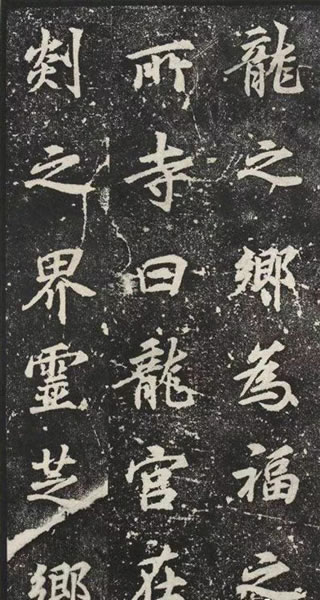 龍之鄉為福之
所寺曰龍宮在
剡之界靈芝鄉